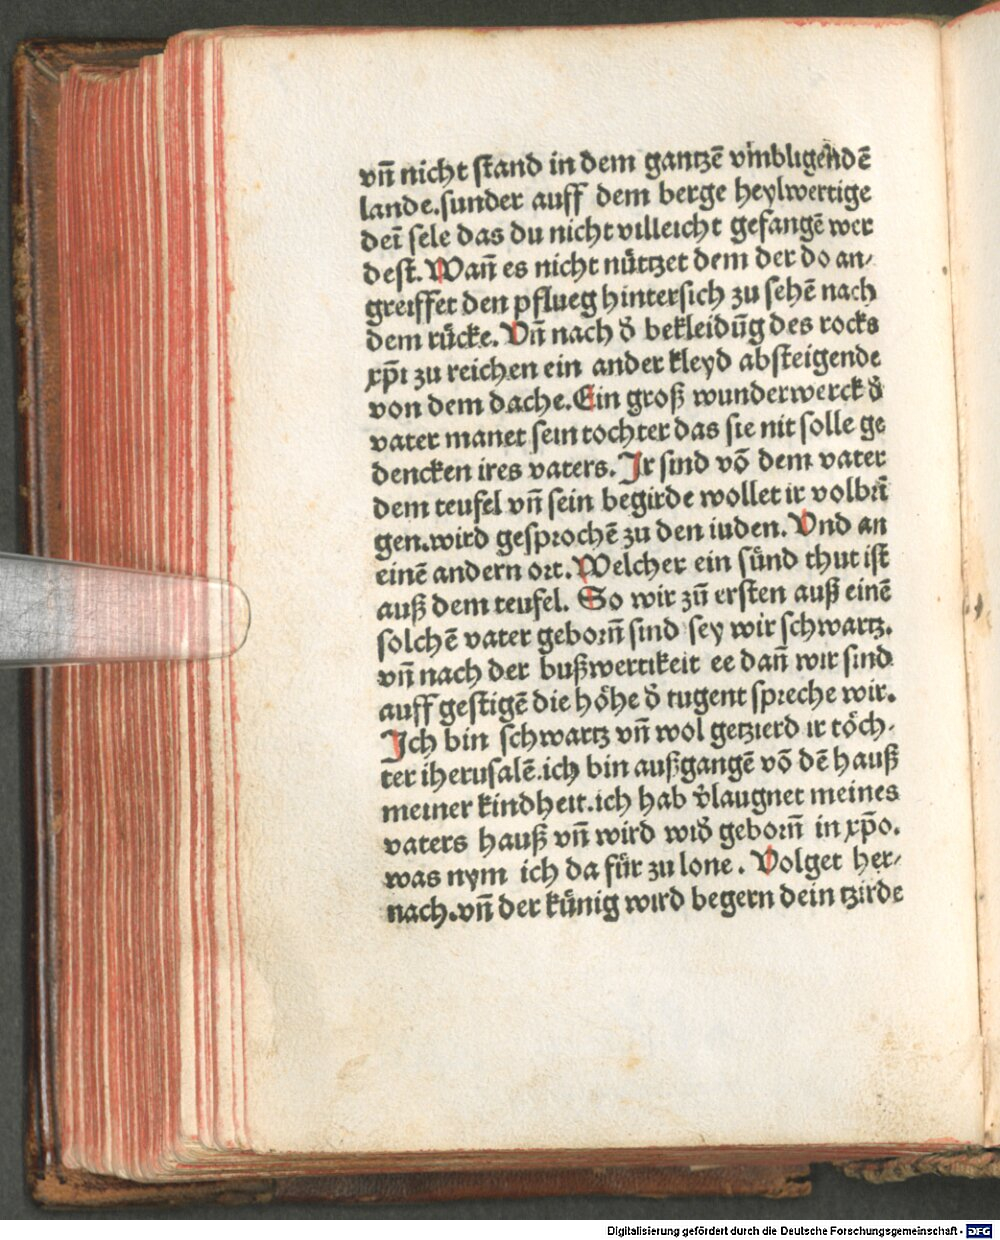 vn̄ nicht stand in dem gantzē vmbligendē
lande.sunder auff dem berge heylwertige
dei͂ sele das du nicht villeicht gefangē wer
dest. Wan̄ es nicht nüttzet dem der do an/
greiffet den pflueg hintersich zu sehē nach
dem rücke. Vn̄ nach d̾ bekleidūg des rocks
xp̄i zu reichen ein ander kleyd absteigende
von dem dache.Ein groß wunderwerck d̾
vater manet sein tochter das sie nit solle ge
dencken ires vaters. Ir sind vō dem vater
dem teufel vn̄ sein begirde wollet ir volbrī
gen.wird gesprochē zu den iuden. Vnd an
einē andern ort. Welcher ein sünd thut ist
auß dem teufel. So wir zū ersten auß einē
solchē vater geborn̄ sind sey wir schwartz.
vn̄ nach der bußwertikeit ee dan̄ wir sind
auff gestigē die höhe d̾ tugent spreche wir.
Ich bin schwartz vn̄ wol getzierd ir töch/
ter iherusalē.ich bin außgangē vō dē hauß
meiner kindheit.ich hab v̾laugnet meines
vaters hauß vn̄ wird wid̾ geborn̄ in xp̄o.
was nym ich da für zu lone. Volget her/
nach.vn̄ der künig wird begern dein tzirde
Digitalisierung gefördert durch die Deutsche Forschungsgemeinschaft - DFG